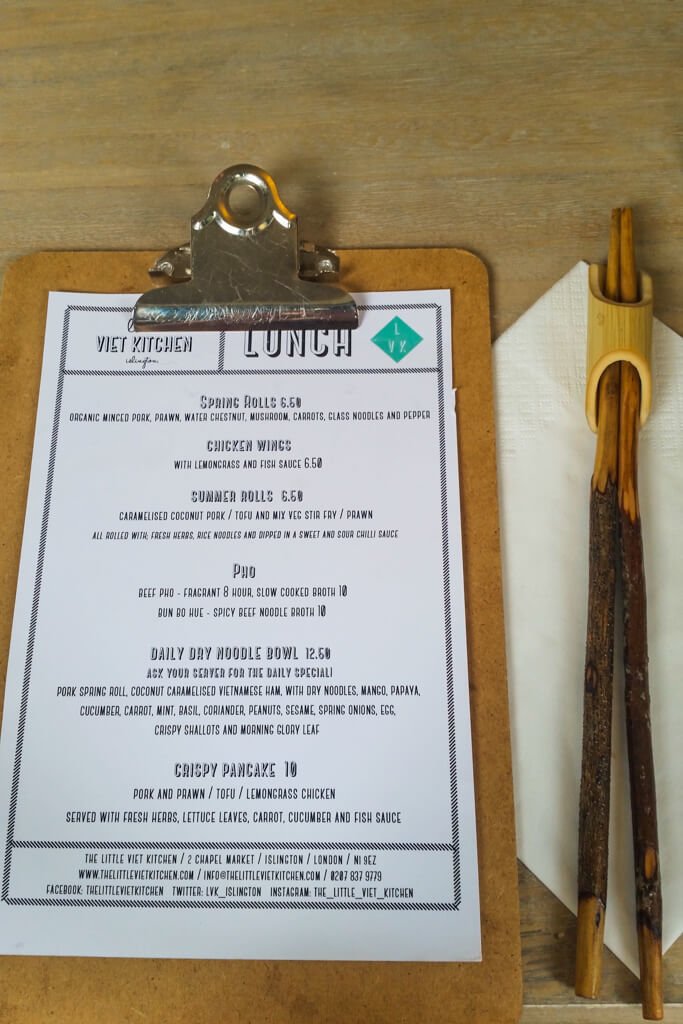 VIET KITCHEN
islington
LUNCH
L
V K
SPRING ROLLS 6.50
ORGANIC MINCED PORK, PRAWN, WATER CHESTNUT, MUSHROOM, CARROTS, GLASS NOODLES AND PEPPER
CHICKEN WINGS
WITH LEMONGRASS AND FISH SAUCE 6.50
SUMMER ROLLS 6.50
CARAMELISED COCONUT PORK / TOFU AND MIX VEG STIR FRY / PRAWN
ALL ROLLED WITH; FRESH HERBS, RICE NOODLES AND DIPPED IN A SWEET AND SOUR CHILLI SAUCE
PHO
BEEF PHO - FRAGRANT 8 HOUR, SLOW COOKED BROTH 10
BUN BO HUE - SPICY BEEF NOODLE BROTH 10
DAILY DRY NOODLE BOWL 12.50
ASK YOUR SERVER FOR THE DAILY SPECIAL!
PORK SPRING ROLL, COCONUT CARAMELISED VIETNAMESE HAM, WITH DRY NOODLES, MANGO, PAPAYA,
CUCUMBER, CARROT, MINT, BASIL, CORIANDER, PEANUTS, SESAME, SPRING ONIONS, EGG,
CRISPY SHALLOTS AND MORNING GLORY LEAF
CRISPY PANCAKE 10
PORK AND PRAWN / TOFU / LEMONGRASS CHICKEN
SERVED WITH FRESH HERBS, LETTUCE LEAVES, CARROT, CUCUMBER AND FISH SAUCE
THE LITTLE VIET KITCHEN / 2 CHAPEL MARKET / ISLINGTON / LONDON / N1 9EZ
WWW.THELITTLEVIETKITCHEN.COM / INFO@THELITTLEVIETKITCHEN.COM / 0207 837 9779
FACEBOOK: THELITTLEVIETKITCHEN TWITTER: LVK_ISLINGTON INSTAGRAM: THE_LITTLE_VIET_KITCHEN